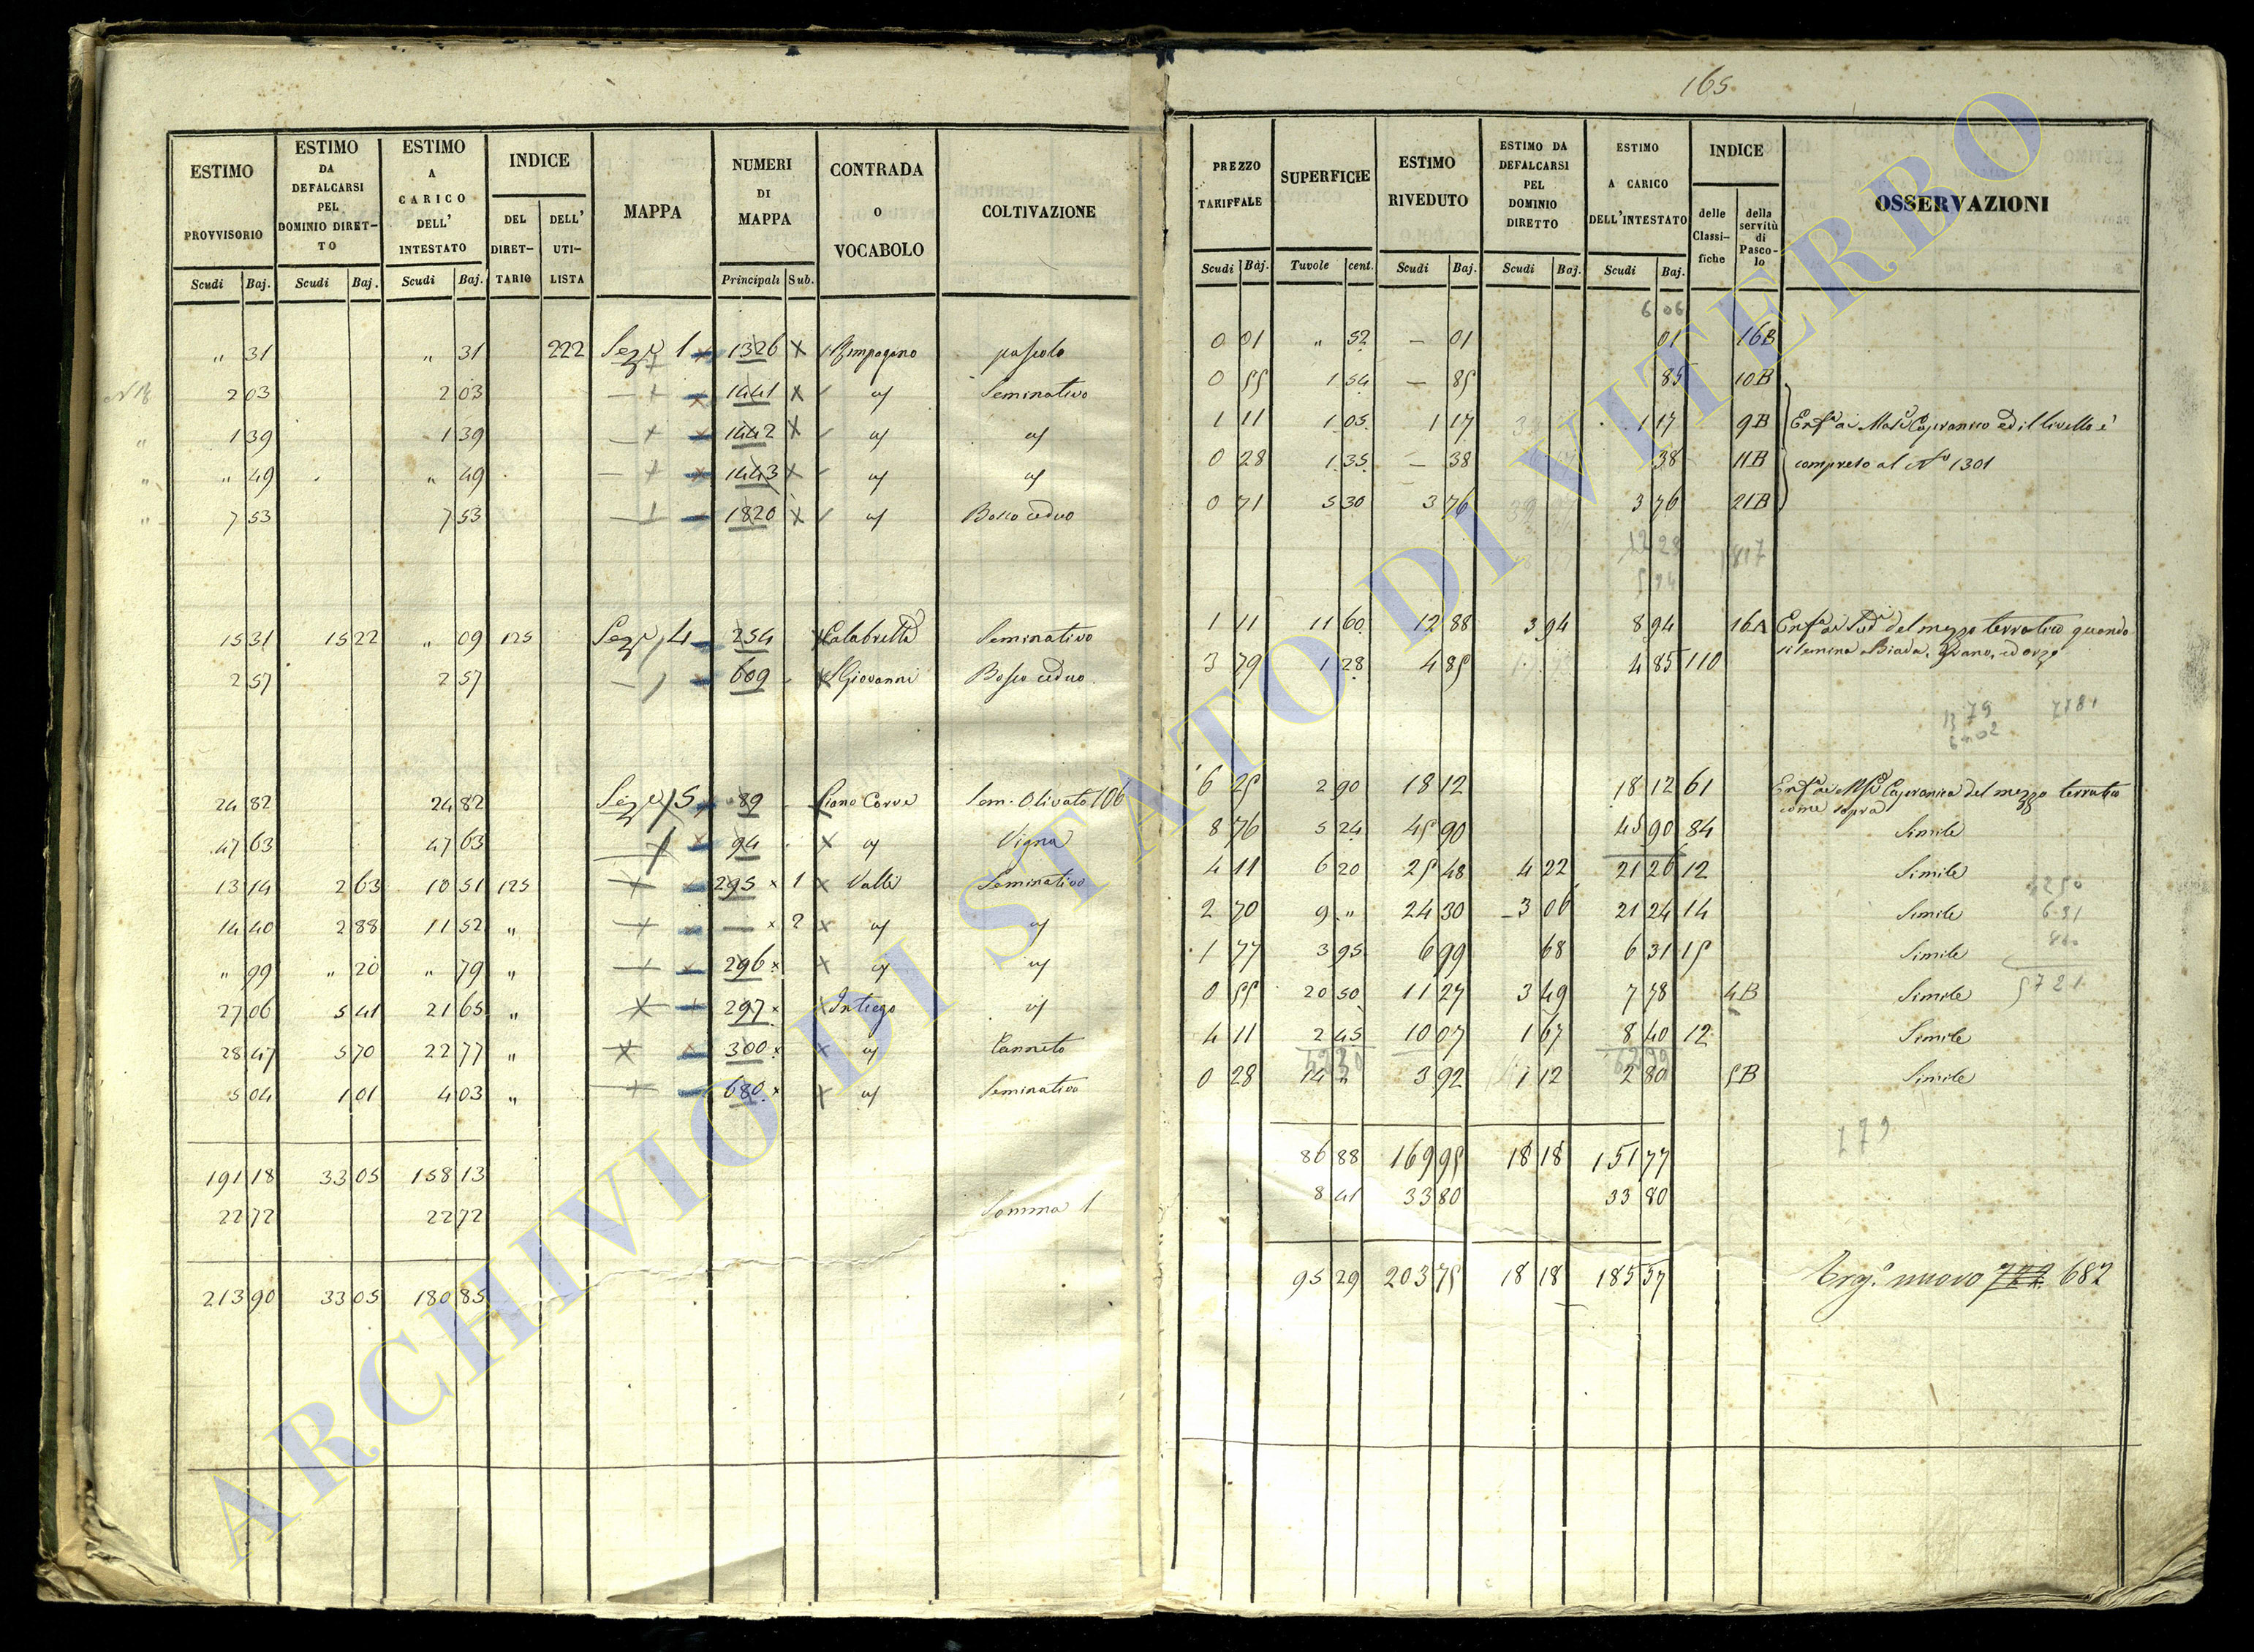 165
ESTIMO PROVVISORIO Scudi Baj.
ESTIMO DA DEFALCARSI PEL DOMINIO DIRETTO Scudi Baj.
ESTIMO A CARICO DELL' INTESTATO Scudi Baj.
INDICE DEL DIRETTARIO DELL' UTILISTA
MAPPA
NUMERI DI MAPPA Principali Sub.
CONTRADA O VOCABOLO
COLTIVAZIONE
PREZZO TARIFFALE Scudi Baj.
SUPERFICIE Tuvole cent.
ESTIMO RIVEDUTO Scudi Baj.
ESTIMO DA DEFALCARSI PEL DOMINIO DIRETTO Scudi Baj.
ESTIMO A CARICO DELL'INTESTATO Scudi Baj.
INDICE delle Classifiche della servitù di Pascolo
OSSERVAZIONI
6 06
" 31 " 31 222 Sez.e 1 1326 pascolo 0 01 " 52 — 01 01 16B
NB 2 03 2 03 — 1441 X Seminativo 0 55 1 54 — 85 85 10B
" 1 39 1 39 — 1442 X 1 11 1 05 1 17 1 17 9B ed il livello è
" " 49 " 49 — 1443 X 0 28 1 35 — 38 38 11B compreso al N.o 1301
" 7 53 7 53 — 1820 X Bosco ceduo 0 71 5 30 3 76 3 76 21B
12 28 1817
5 94
15 31 15 22 " 09 125 Sez.e 4 254 Calabretta Seminativo 1 11 11 60 12 88 3 94 8 94 16A del mezzo terratico quando
si semina Biada, Grano, ed orzo
2 57 2 57 — 609 S Giovanni Bosco ceduo 3 79 1 28 4 85 4 85 110
24 82 24 82 Sez.e 5 89 Piano Corve Sem. Olivato 106 6 25 2 90 18 12 18 12 61 Capranica del mezzo terratico
come sopra
47 63 47 63 94 X Vigna 8 76 5 24 45 90 45 90 84 Simile
13 14 2 63 10 51 125 295 x 1 x Valle Seminativo 4 11 6 20 25 48 4 22 21 26 12 Simile
14 40 2 88 11 52 " — x 2 x 2 70 9 " 24 30 3 06 21 24 14 Simile
" 99 " 20 " 79 " 296 x x 1 77 3 95 6 99 68 6 31 15 Simile
27 06 5 41 21 65 " 297 x x Intiego 0 55 20 50 11 27 3 49 7 78 4B Simile
28 47 5 70 22 77 " 300 x x Canneto 4 11 2 45 10 07 1 67 8 40 12 Simile
5 04 1 01 4 03 " 680 x x Seminativo 0 28 14 " 3 92 1 12 2 80 5B Simile
191 18 33 05 158 13 86 88 169 95 18 18 151 77
22 72 22 72 Somma 1 8 41 33 80 33 80
213 90 33 05 180 85 95 29 203 75 18 18 185 57 nuovo 682
ARCHIVIO DI STATO DI VITERBO